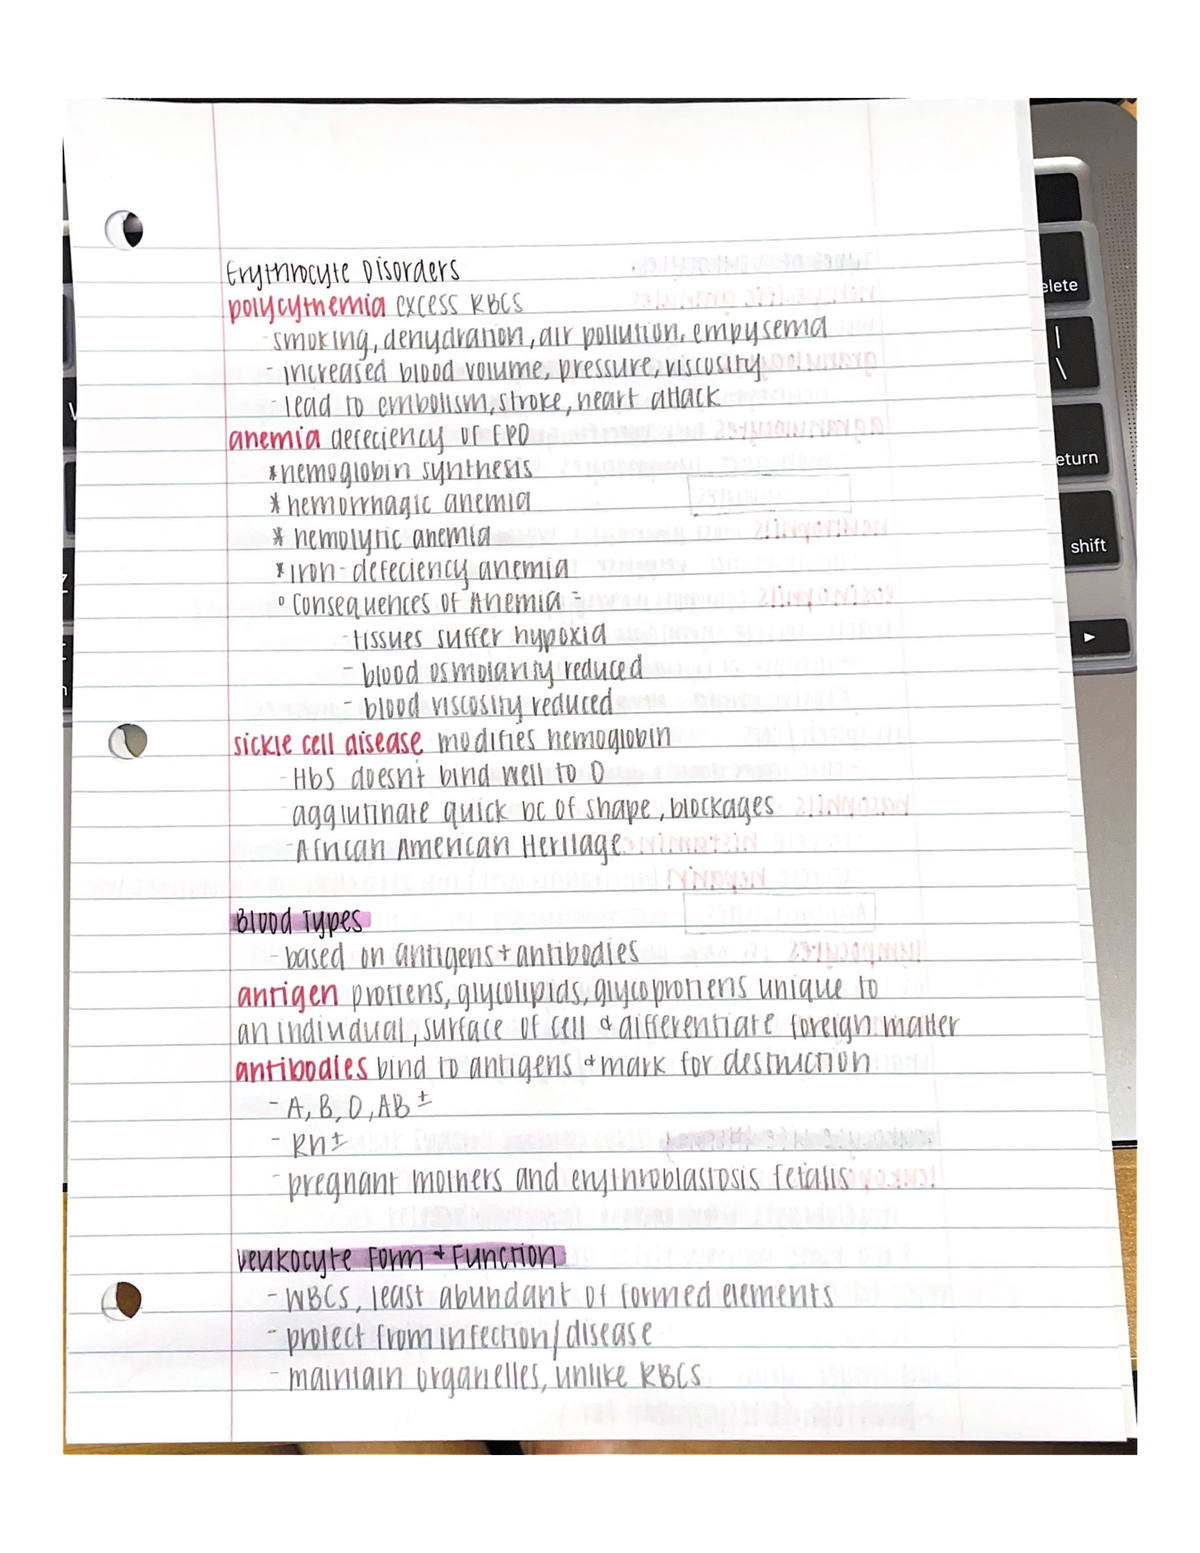 Erythrocyte Disorders
polycythemia excess RBCS
- smoking, dehydration, air pollution, empysema
- increased blood volume, pressure, viscosity
- lead to embolism, stroke, heart attack
anemia defeciency of EPO
* hemoglobin synthesis
* hemorrhagic anemia
* hemolytic anemia
* iron-defeciency anemia
° Consequences of Anemia -
- tissues suffer hypoxia
- blood osmolarity reduced
- blood viscosity reduced
sickle cell disease modifies hemoglobin
- HbS doesn't bind well to O
- agglutinate quick bc of shape, blockages
- African American Heritage
Blood Types
- based on antigens + antibodies
antigen protiens, glycolipids, glycoprotiens unique to
an individual, surface of cell & differentiate foreign matter
antibodies bind to antigens & mark for destruction
- A, B, O, AB ±
- Rh±
- pregnant mothers and erythroblastosis fetalis
Leukocyte Form + Function
- WBCS, least abundant of formed elements
- protect from infection/disease
- maintain organelles, unlike RBCS
elete
|
\
eturn
shift